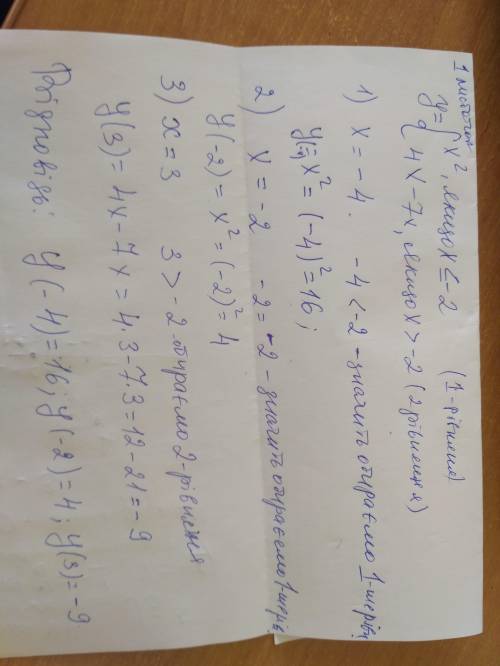 1 листопада
y = { x², якщо x ≤ -2 (1-рівняння)
4x - 7x, якщо x > -2 (2 рівняння)
1) x = -4. -4 < -2 - значить обираємо 1-ше рівн
y(-4) = x² = (-4)² = 16;
2) x = -2 -2 = -2 - значить обираємо 1-ше рів
y(-2) = x² = (-2)² = 4
3) x = 3 3 > -2 обираємо 2-рівняння
y(3) = 4x - 7x = 4·3 - 7·3 = 12 - 21 = -9
Відповідь: y(-4) = 16; y(-2) = 4; y(3) = -9